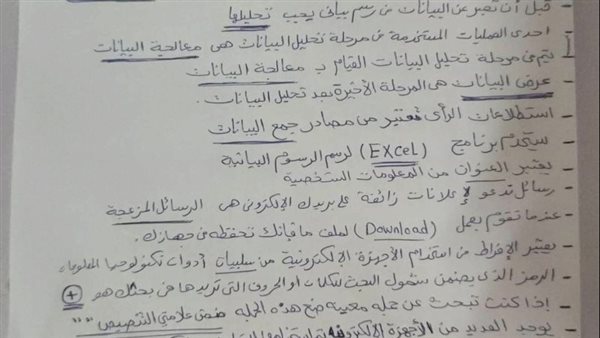 - قبل أن تعبر عن البيانات فى رسم بيانى يجب تحليلها
- احدى العمليات المستخدمة فى مرحلة تحليل البيانات هى معالجة البيانات
- تتم فى مرحلة تحليل البيانات القيام بـ معالجة البيانات
- عرض البيانات هى المرحلة الأخيرة بعد تحليل البيانات .
- استطلاعات الرأى تعتبر من مصادر جمع البيانات
- ستخدم برنامج (Excel) لرسم الرسوم البيانية
- يعتبر العنوان من المعلومات الشخصية
- رسائل تدعو لإعلانات زائفة على بريدك الإلكترونى هى الرسائل المزعجة
- عندما تقوم بعمل (Download) لملف ما فإنك تحفظه فى جهازك .
- يعتبر الإفراط فى استخدام الأجهزة الإلكترونية من سلبيات أدوات تكنولوجيا المعلومات
- الرمز الذى يضمن شمول البحث للكلمات أو الحروف التى تريدها فى بحثك هو +
- إذا كنت تبحث عن جملة معينة ضع هذه الجملة ضمن علامتى التنصيص " "
- يوجد العديد من الأجهزة الإلكترونية